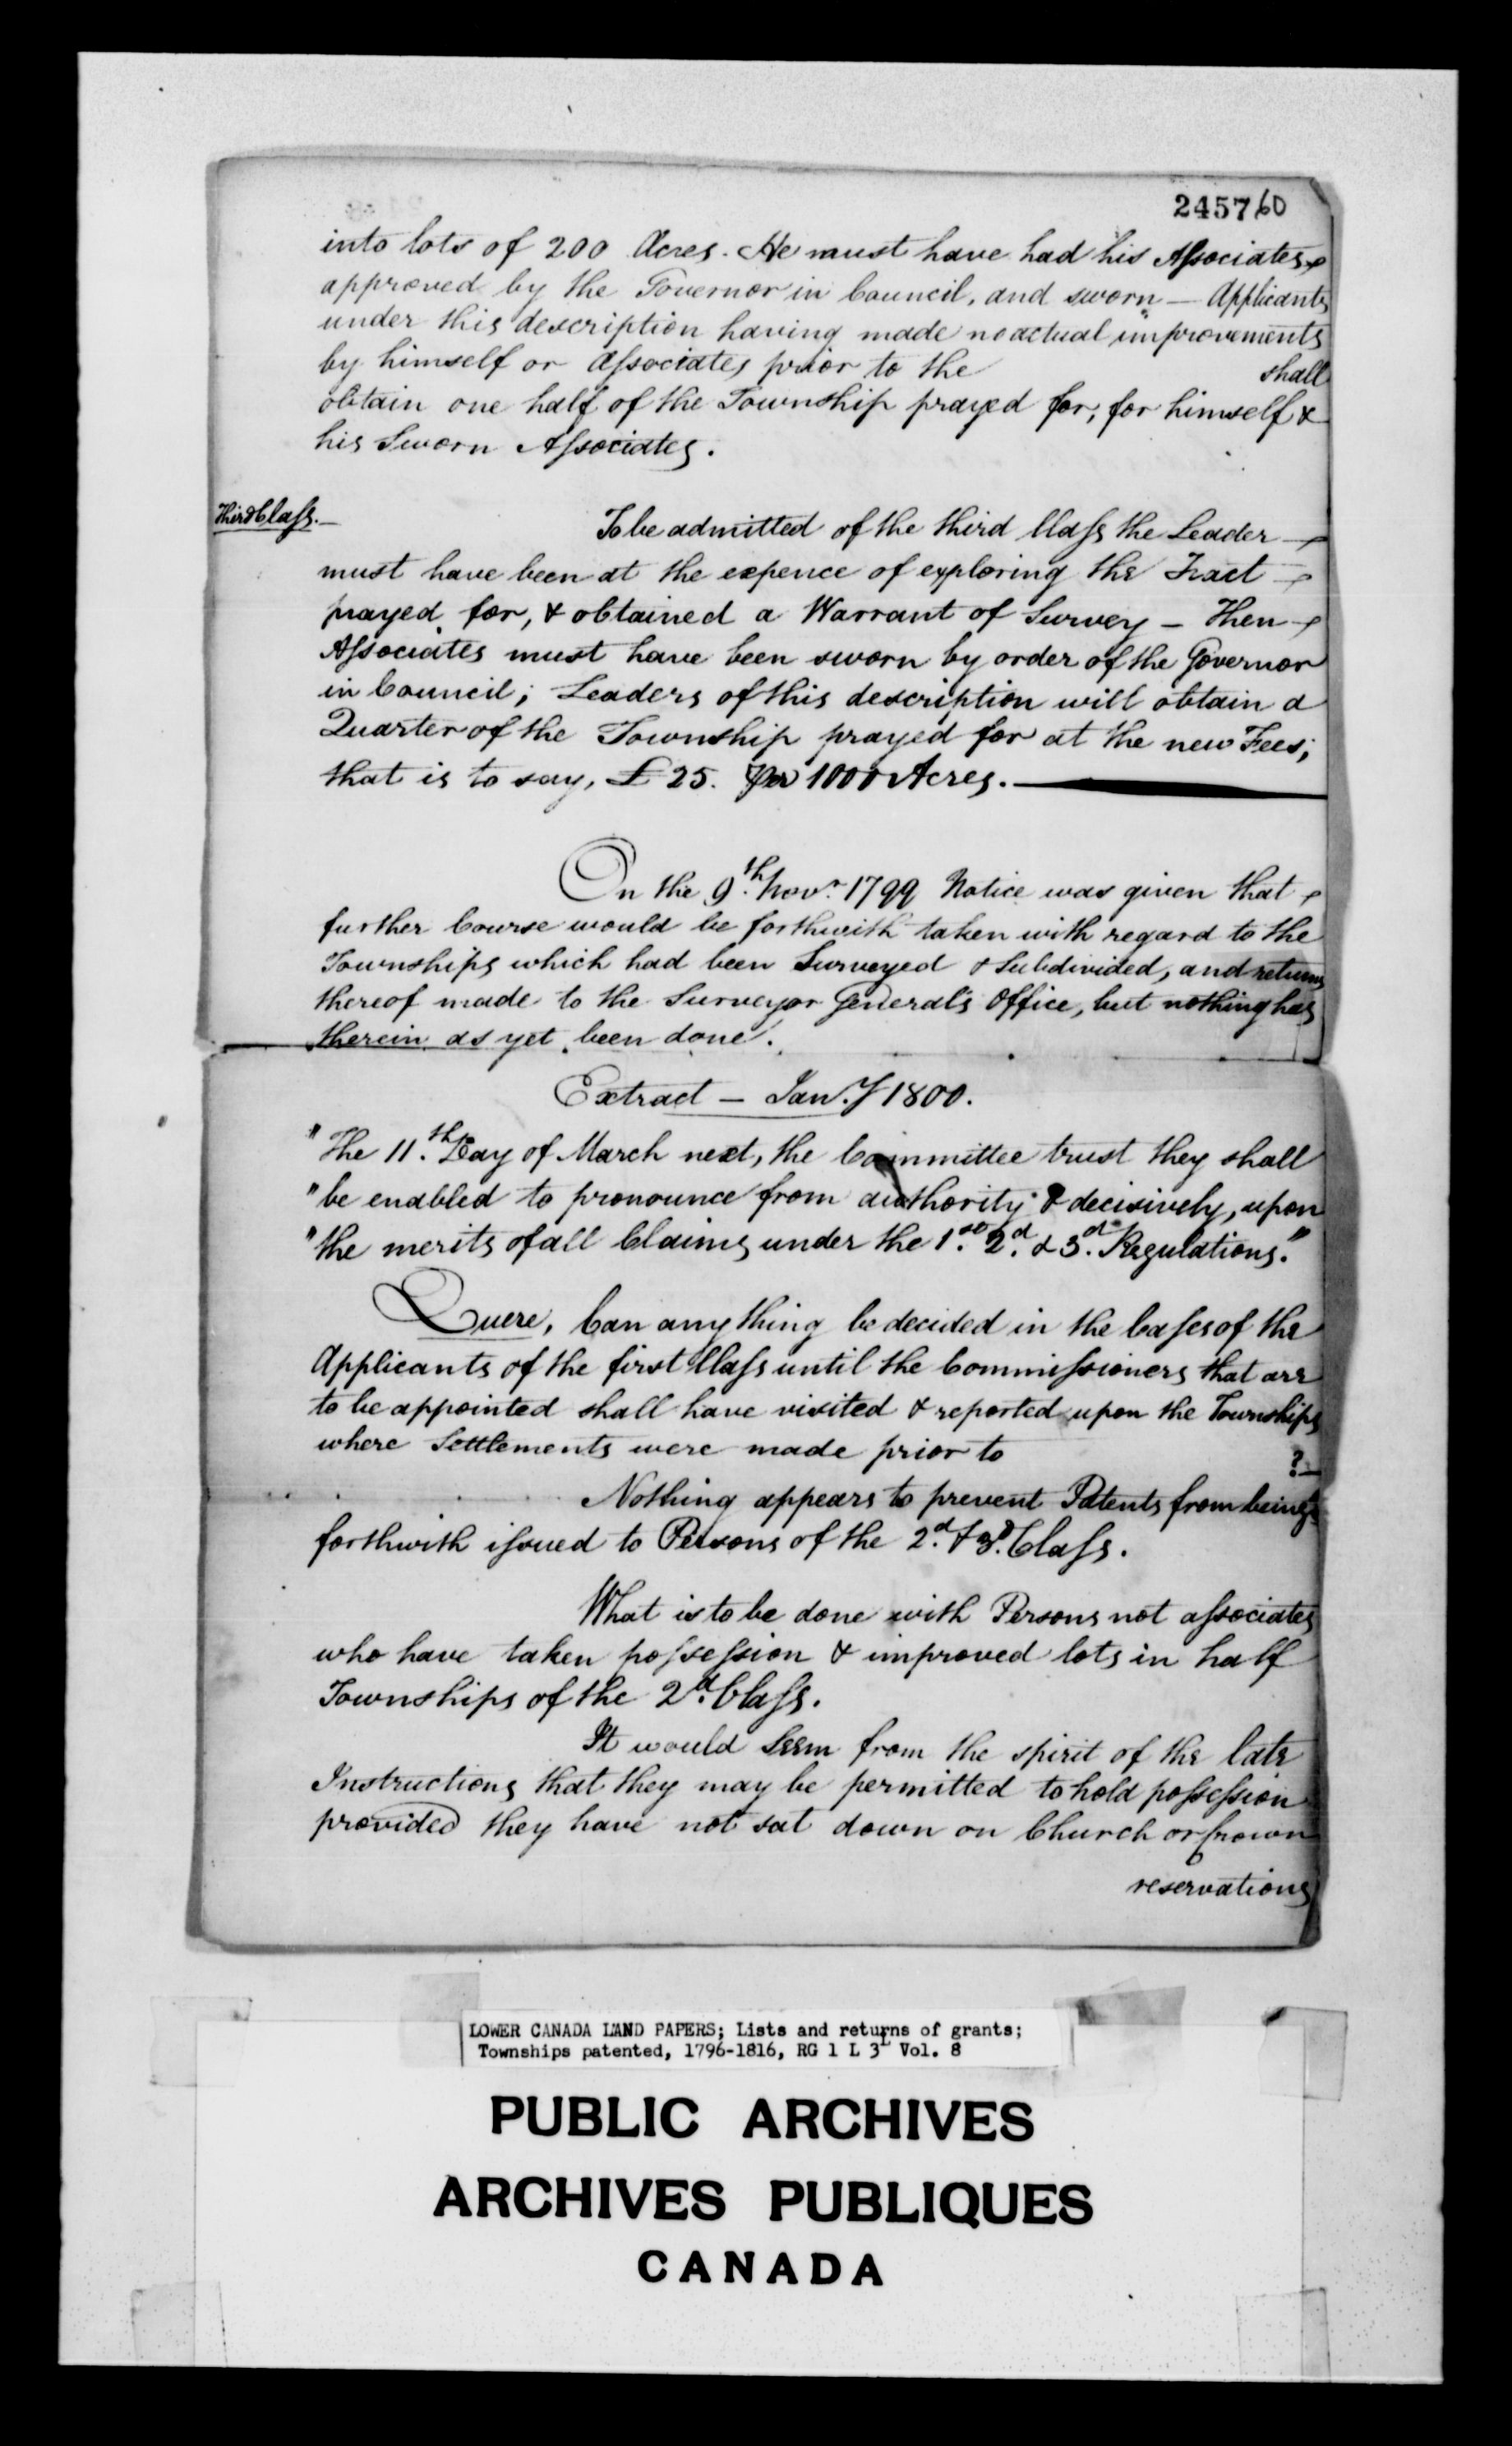 245760
into lots of 200 Acres. He must have had his Associates
approved by the Governor in Council, and sworn — Applicants
under this description having made no actual improvements
by himself or Associates prior to the shall
obtain one half of the Township prayed for, for himself &
his Sworn Associates.
Third Class.—
To be admitted of the third Class the Leader —
must have been at the expence of exploring the Tract —
prayed for, & obtained a Warrant of Survey — Then
Associates must have been sworn by order of the Governor
in Council; Leaders of this description will obtain a
Quarter of the Township prayed for at the new Fees;
that is to say, £ 25. Per 1000 Acres.—
On the 9.th Novr. 1799 Notice was given that
further Course would be forthwith taken with regard to the
Townships which had been Surveyed & Subdivided, and returns
thereof made to the Surveyor General's Office, but nothing has
therein as yet been done.
Extract — Jan.y 1800.
"The 11.th Day of March next, the Committee trust they shall
"be enabled to pronounce from authority & decisively, upon
"the merits of all Claims under the 1.st 2.d & 3.d Regulations."
Quere, Can any thing be decided in the Cases of the
Applicants of the first Class until the Commissioners that are
to be appointed shall have visited & reported upon the Townships
where Settlements were made prior to ?—
Nothing appears to prevent Patents from being
forthwith issued to Persons of the 2.d & 3.d Class.
What is to be done with Persons not associates
who have taken possession & improved lots in half
Townships of the 2.d Class.
It would Seem from the spirit of the late
Instructions that they may be permitted to hold possession
provided they have not sat down on Church or Crown
reservations
LOWER CANADA LAND PAPERS; Lists and returns of grants;
Townships patented, 1796-1816, RG 1 L 3L Vol. 8
PUBLIC ARCHIVES
ARCHIVES PUBLIQUES
CANADA